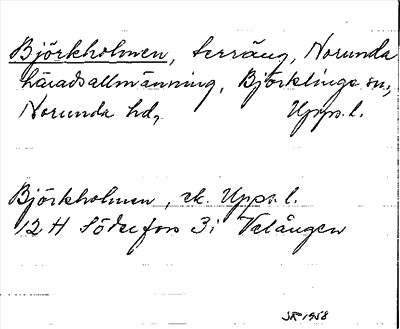 Björkholmen, terräng, Norunda
häradsallmänning, Björklinge sn,
Norunda hd, Upps. l.
Björkholmen, ek. Upps. l.
12 H Söderfors 3 i Valången
SR 1958